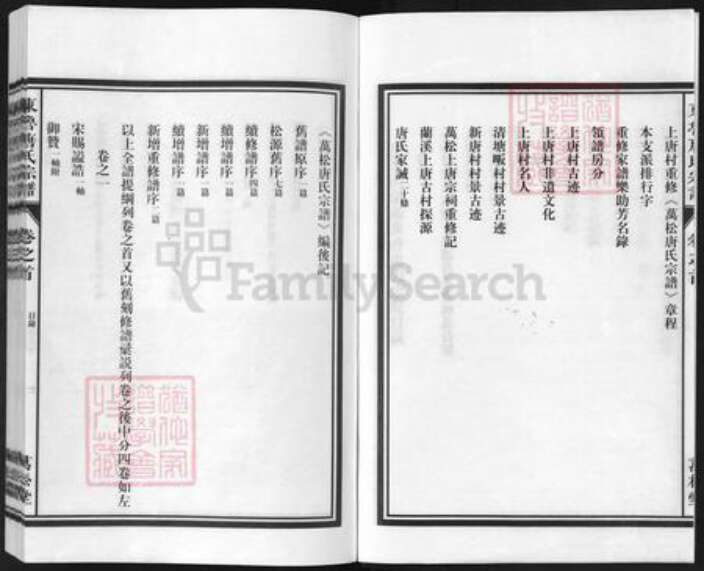 上唐村重修《萬松唐氏宗譜》章程
本支派排行字
重修家譜樂助芳名錄
領譜房分
上唐村古迹
上唐村非遺文化
上唐村名人
清塘畈村村景古迹
新唐村村景古迹
萬松上唐宗祠重修記
蘭溪上唐古村探源
唐氏家誡 二十條
《萬松唐氏宗譜》編後記
舊譜原序 一篇
松源舊序 七篇
續修譜序 四篇
續增譜序 一篇
新增譜序 一篇
續增譜序 一篇
新增重修譜序 一篇
以上全譜提綱列卷之首又以舊刻修譜彙説列卷之後中分四卷如左
卷之一
宋賜謚誥 一軸
御贊 一軸附
東魯唐氏宗譜
卷之首
目錄
萬松堂
FamilySearch